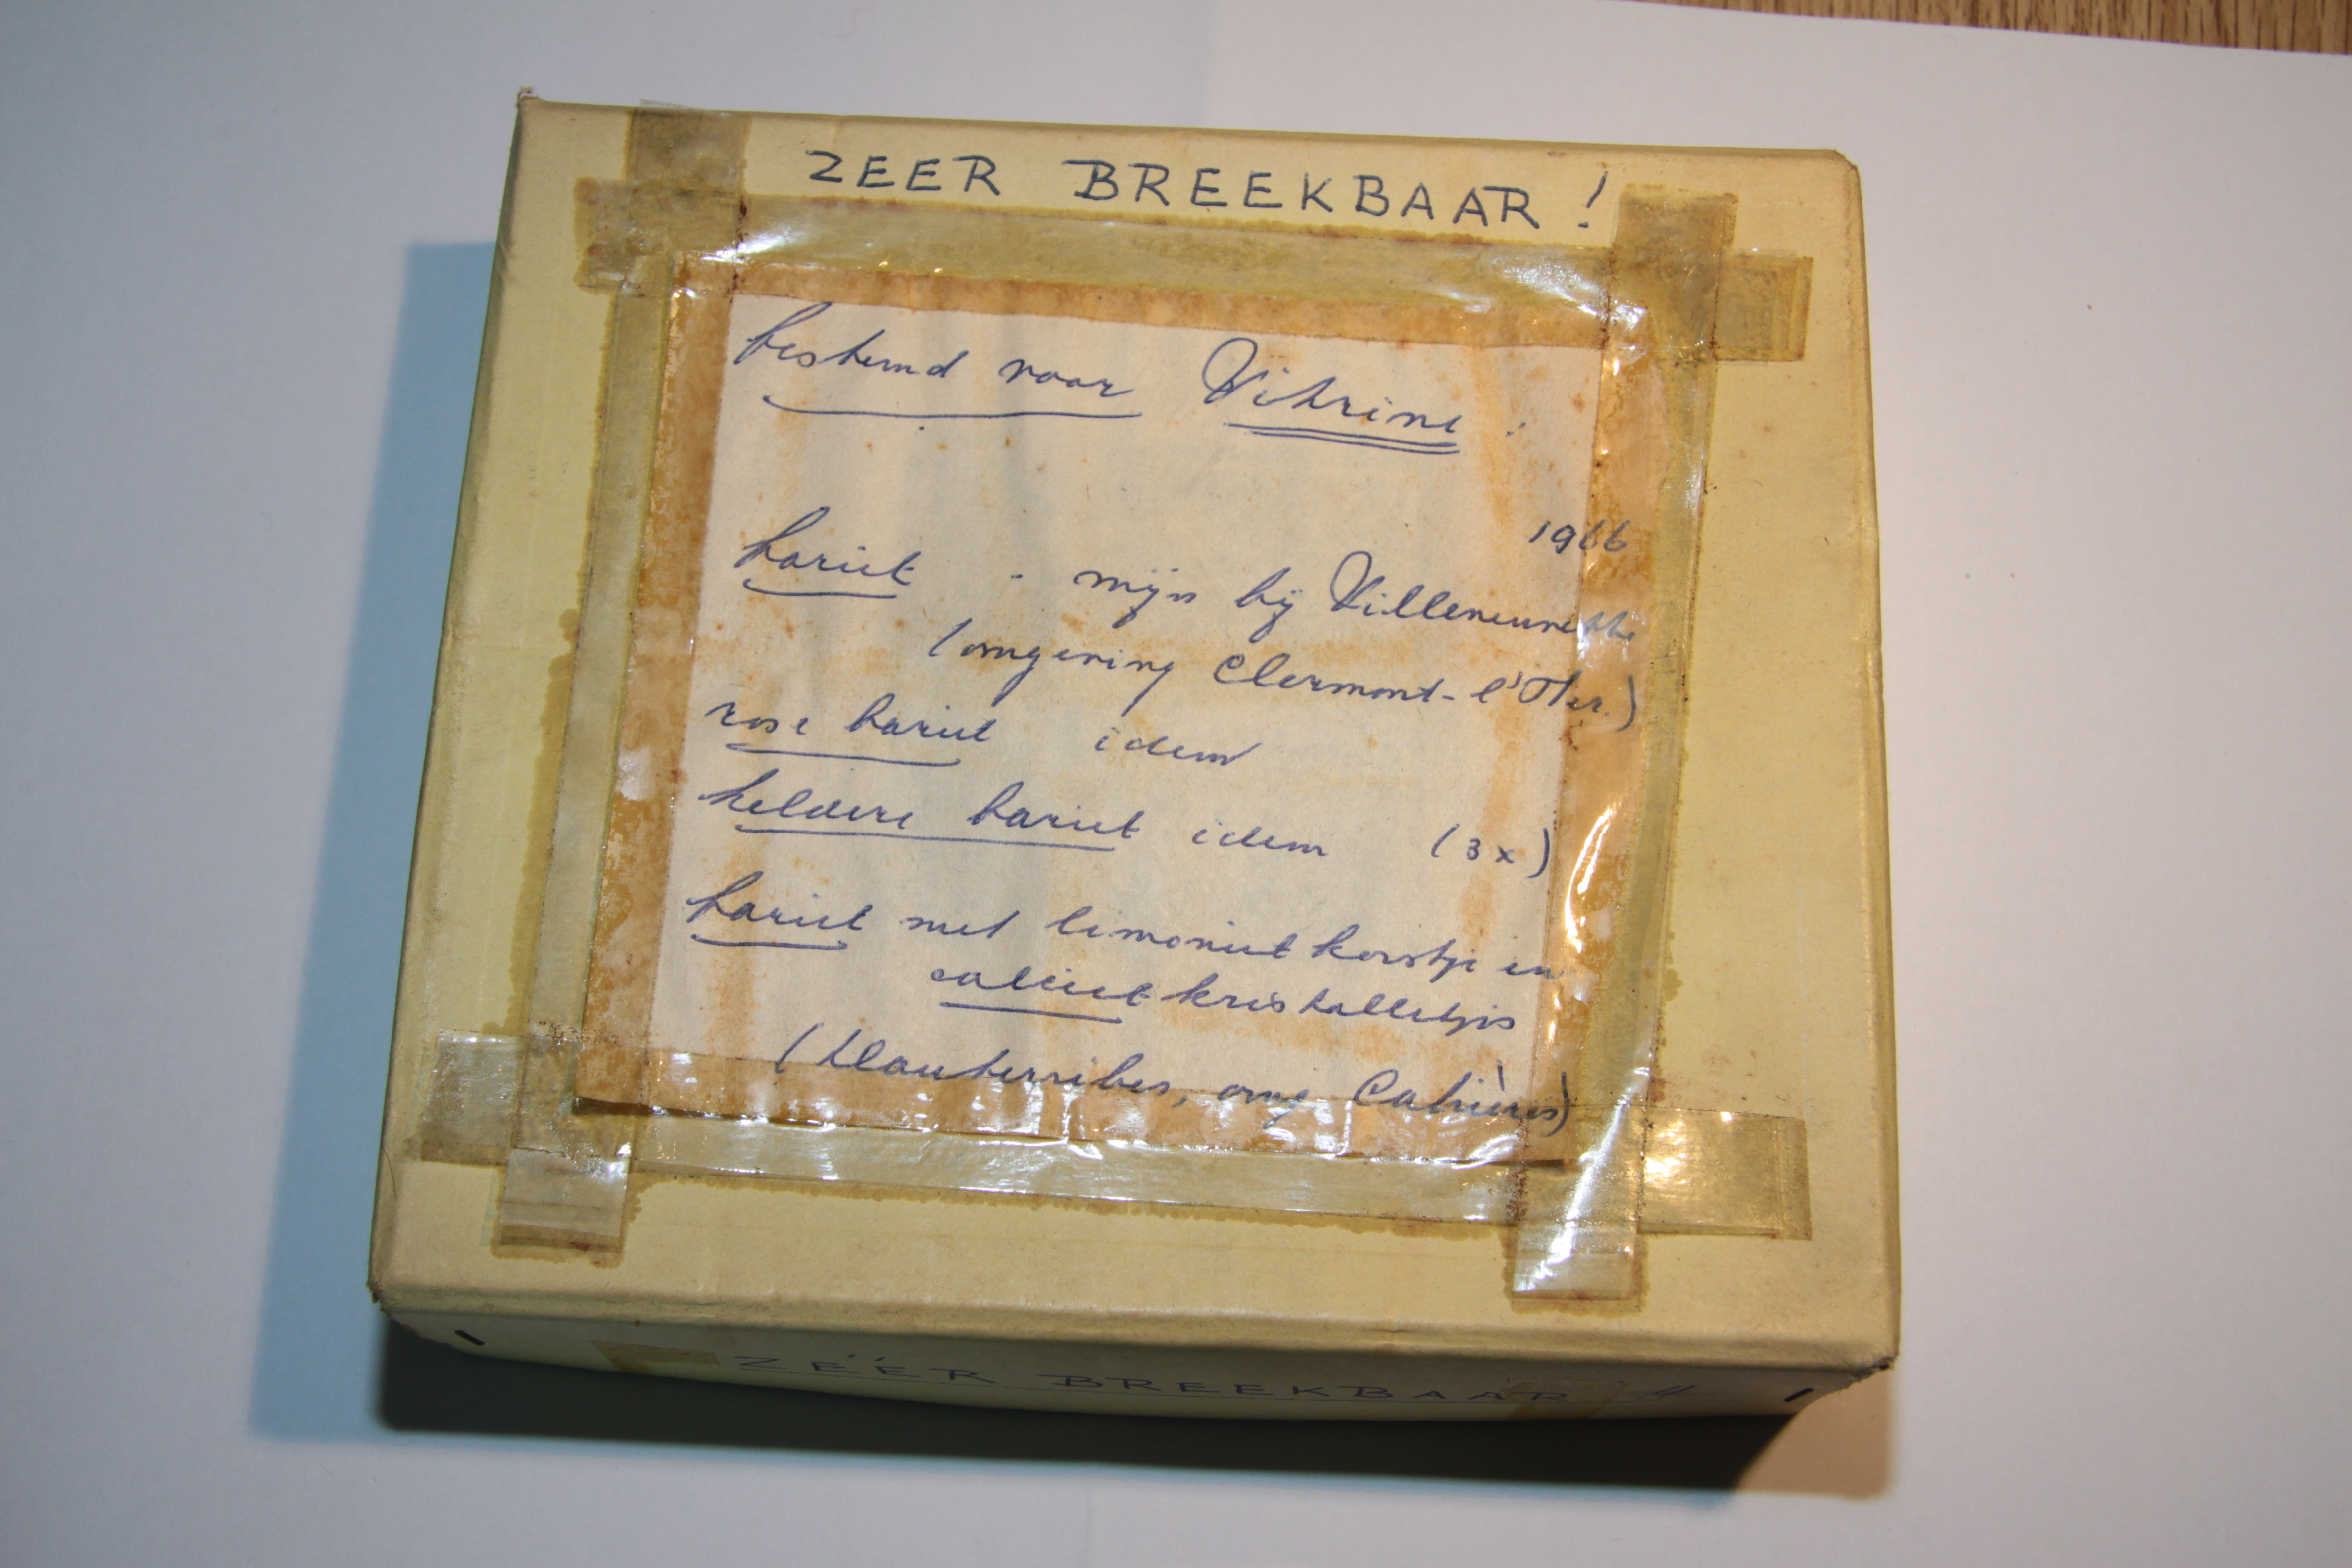 ZEER BREEKBAAR!
bestemd voor Vitrine:
1966
bariet - mijn bij Villeneuvette
(omgeving Clermont-l'Her.)
rose bariet idem
heldere bariet idem (3x)
bariet met limoniet korstje en
calciet kristalletjes
(Hauterribes, omg Cabrières)
ZÉÉR BREEKBAAR !!